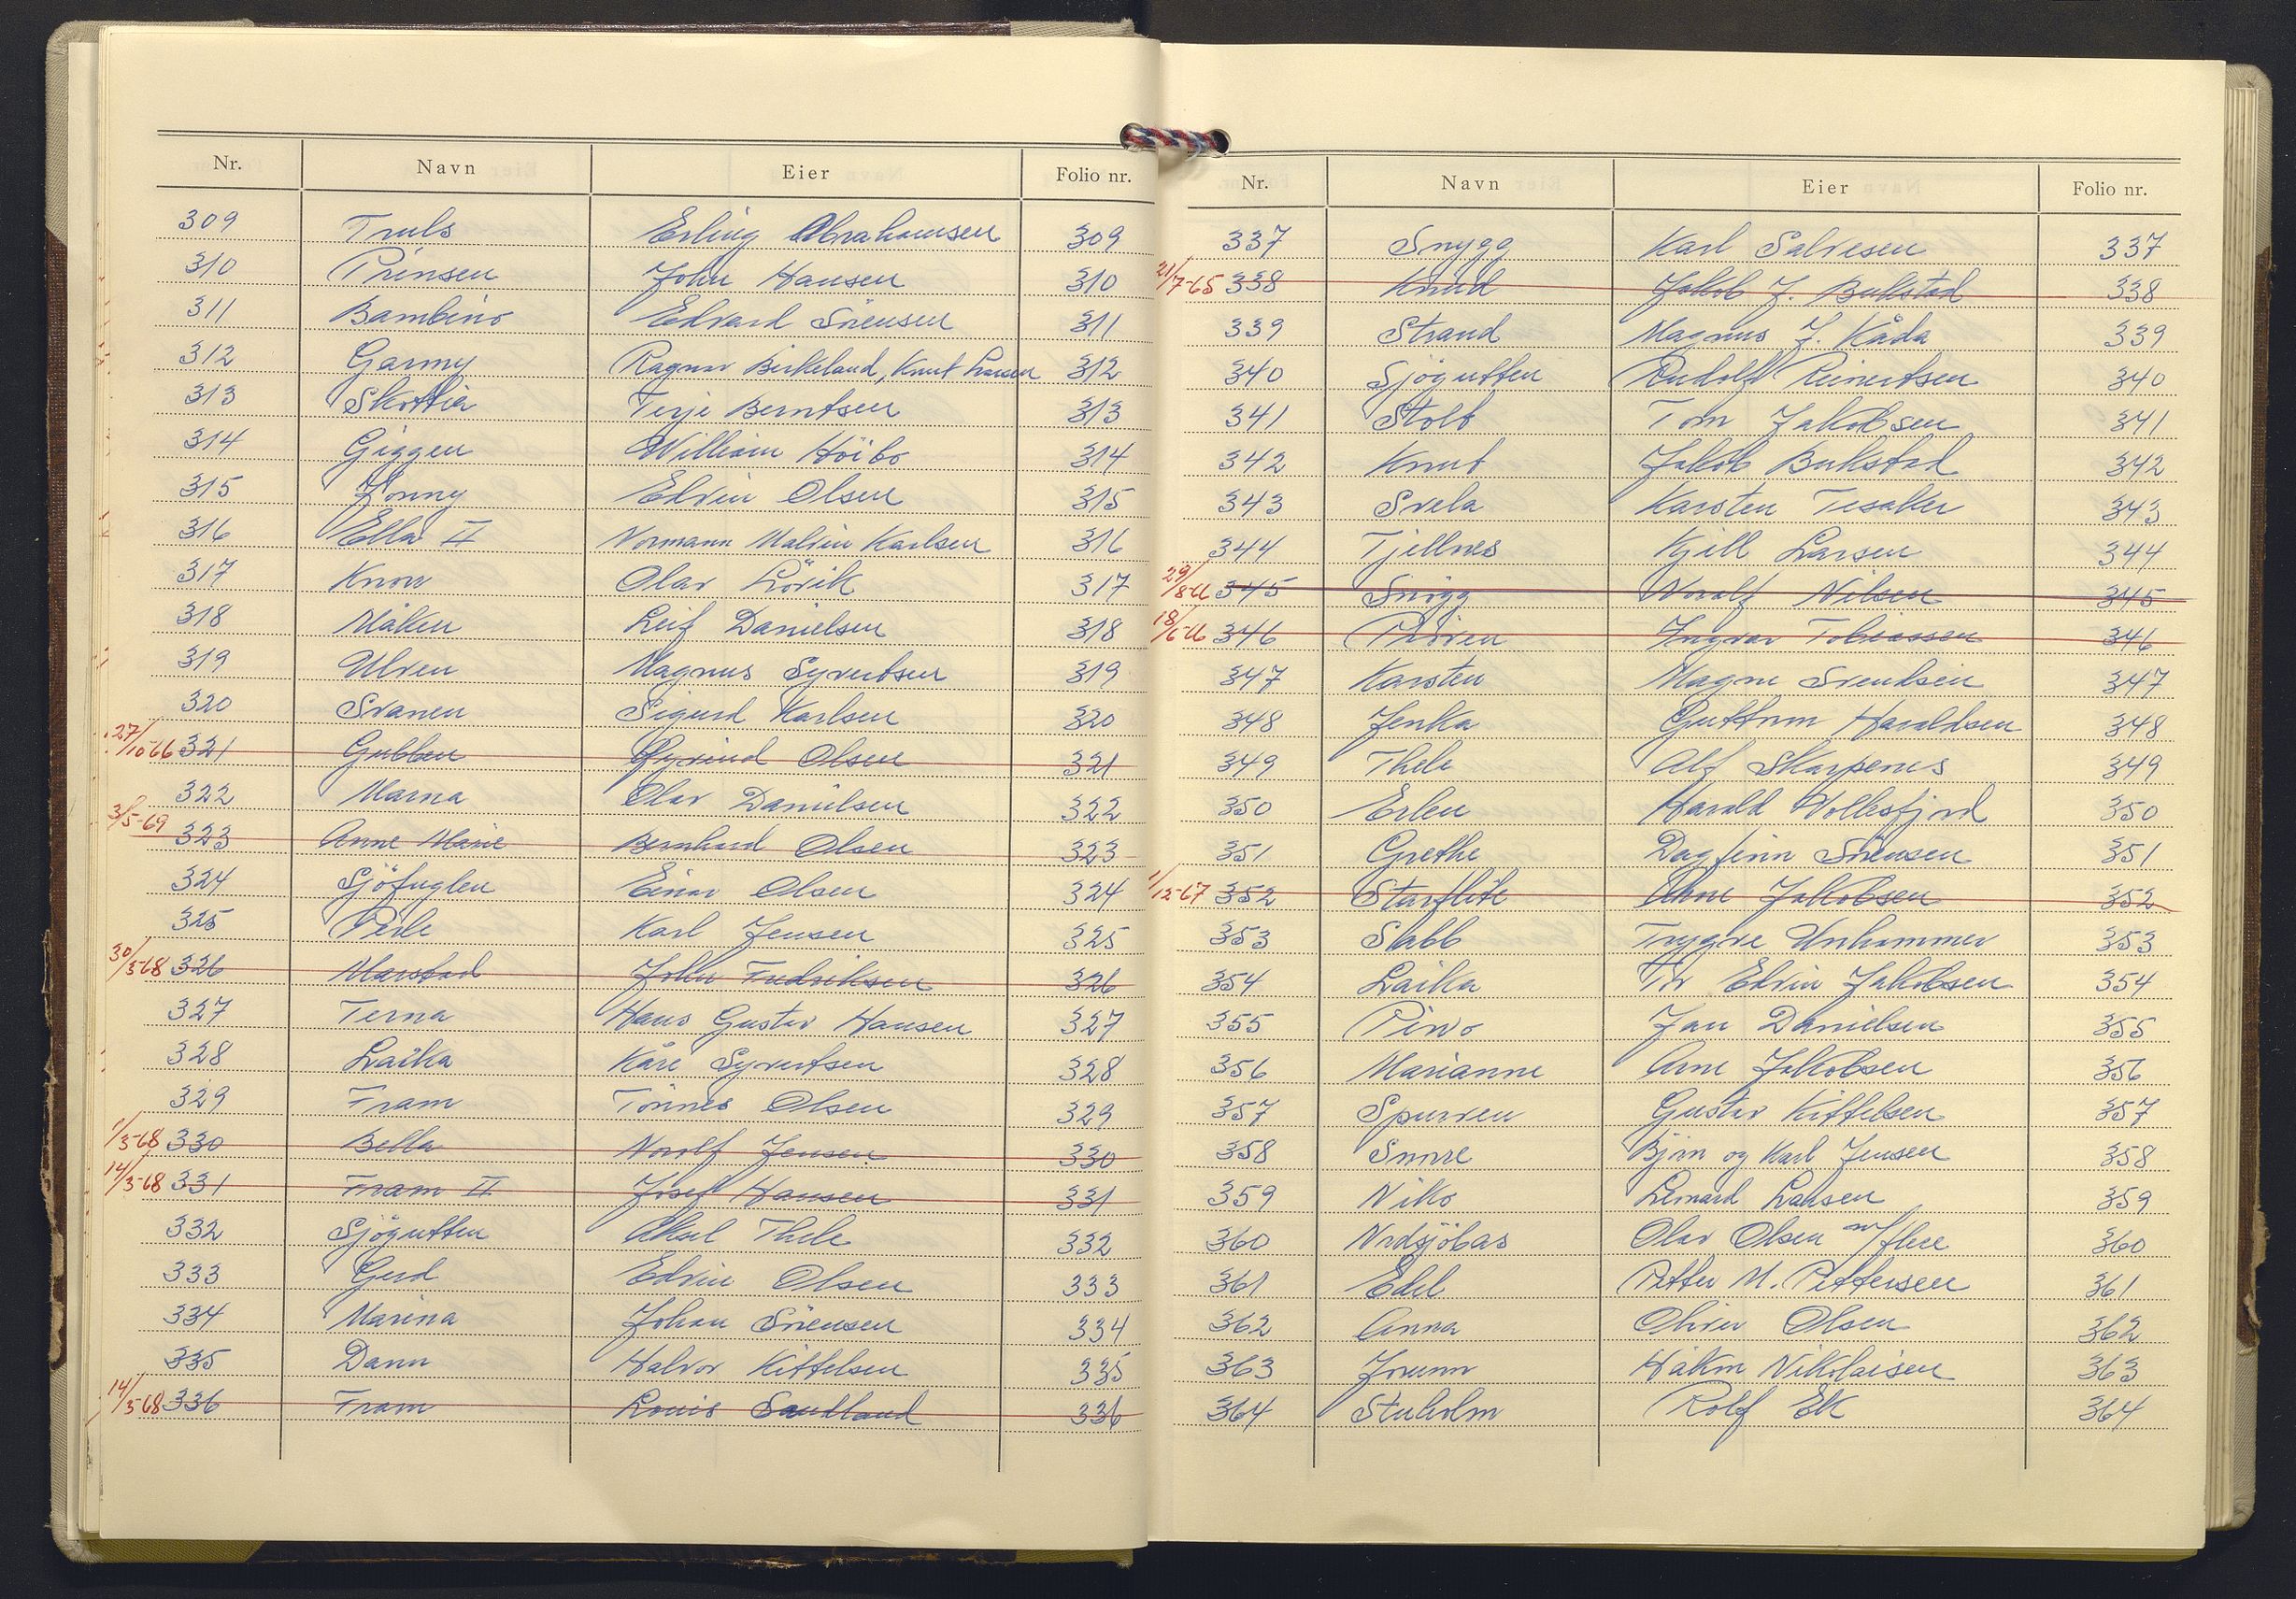 Nr. Navn Eier Folio nr.
309 Truls Erling Abrahamsen 309
310 Prinsen John Hansen 310
311 Bambino Edvard Sörensen 311
312 Garmy Ragnar Birkeland, Knut Larsen 312
313 Skottia Terje Berntsen 313
314 Giggen William Höibo 314
315 Jonny Edvin Olsen 315
316 Ella II Normann Malvin Karlsen 316
317 Know Olav Lövik 317
318 Måken Leif Danielsen 318
319 Ulven Magnus Syvertsen 319
320 Svanen Sigurd Karlsen 320
27/10-66 321 Gubben Øyvind Olsen 321
322 Marna Olav Danielsen 322
3/5-69 323 Anne Marie Bernhard Olsen 323
324 Sjöfuglen Einar Olsen 324
325 Perle Karl Jensen 325
30/3-68 326 Marstad John Fredriksen 326
327 Terna Hans Gustav Hansen 327
328 Laika Kåre Syvertsen 328
329 Fram Tönnes Olsen 329
1/3-68 330 Bella Norolf Jensen 330
14/3-68 331 Fram II Josef Hansen 331
332 Sjögutten Aksel Thele 332
333 Gerd Edvin Olsen 333
334 Marina Johan Sörensen 334
335 Dann Halvor Kittelsen 335
14/3-68 336 Fram Louis Sandland 336
Nr. Navn Eier Folio nr.
337 Snygg Karl Salvesen 337
21/7-65 338 Knud Jakob J. Bukstad 338
339 Strand Magnus J. Kåda 339
340 Sjögutten Rudolf Reinertsen 340
341 Stolt Tom Jakobsen 341
342 Knut Jakob Bukstad 342
343 Svela Karsten Tesaker 343
344 Tjellnes Kjell Larsen 344
29/8-66 345 Snögg Norolf Nilsen 345
18/6-66 346 Pröven Ingvar Tobiassen 346
347 Karsten Magne Svendsen 347
348 Jenka Guttorm Haraldsen 348
349 Thele Alf Skarpenes 349
350 Erlen Harald Vollesfjord 350
351 Grethe Dagfinn Sörensen 351
1/12-67 352 Starflite Arne Jakobsen 352
353 Stabb Trygve Unhammer 353
354 Laika Tor Edvin Jakobsen 354
355 Pirvo Jan Danielsen 355
356 Marianne Arne Jakobsen 356
357 Spurven Gustav Kittelsen 357
358 Snorre Bjørn og Karl Jensen 358
359 Niko Lennard Larsen 359
360 Nordsjöbas Olav Olsen m/flere 360
361 Edel Petter M. Pettersen 361
362 Anna Oliver Olsen 362
363 Jorunn Håkon Nikolaisen 363
364 Stuholm Rolf Ek 364